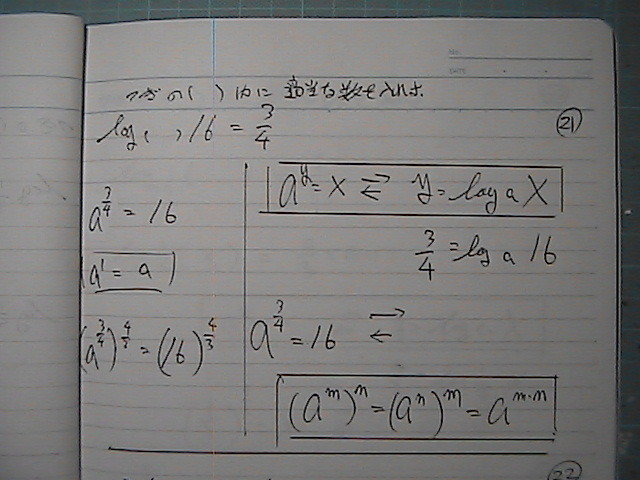 次の( )内に適当な数を入れよ
log( ) 16 = 3/4
(21)
a^(3/4) = 16
(a^1 = a)
(a^(3/4))^(4/3) = (16)^(4/3)
a^y = x ⇄ y = log a X
3/4 = log a 16
a^(3/4) = 16 ⇄
(a^m)^n = (a^n)^m = a^(m·n)
(22)